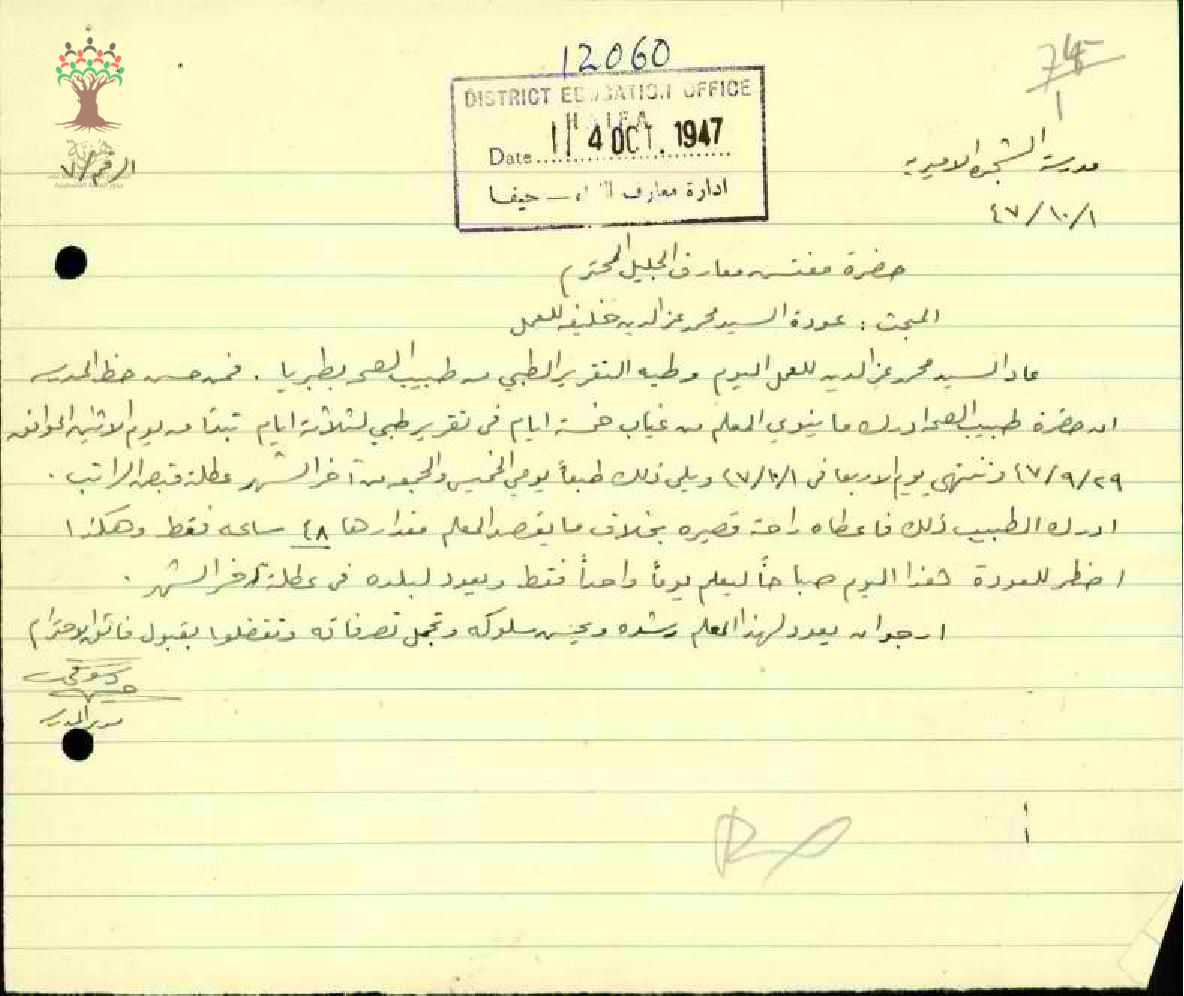 12060
74
1
DISTRICT EDUCATION OFFICE
HAIFA
Date 4 OCT. 1947
ادارة معارف اللواء — حيفا
مدرسة الشجرة الاميرية
الرقم /٧
٤٧/١٠/١
حضرة مفتش معارف الجليل المحترم
المبحث : عودة السيد محمد عز الدين خليفه للعمل
عاد السيد محمد عز الدين للعمل اليوم وطيه التقرير الطبي من طبيب الصحه بطبريا . فمن حسن حظ المدرسه
ان حضرة طبيب الصحه ادرك ما ينوي المعلم من غياب خمسة ايام في تقرير طبي لثلاثة ايام تبدأ من يوم الاثنين الموافق
٤٧/٩/٢٩ وتنتهي يوم الاربعا في ٤٧/١٠/١ ويلي ذلك طبعاً يومي الخميس والجمعه من آخر الشهر عطلة قبض الراتب .
ادرك الطبيب ذلك فاعطاه راحة قصيره بخلاف ما يقصد المعلم مقدارها ٤٨ ساعه فقط وهكذا
اضطر للعودة هذا اليوم صباحاً ليعلم يوماً واحداً فقط ويعود لبلده في عطلة آخر الشهر .
ارجو ان يعود لهذا المعلم رشده ويحسن سلوكه وتجمل تصرفاته وتفضلوا بقبول فائق الاحترام
مدير المدرسه